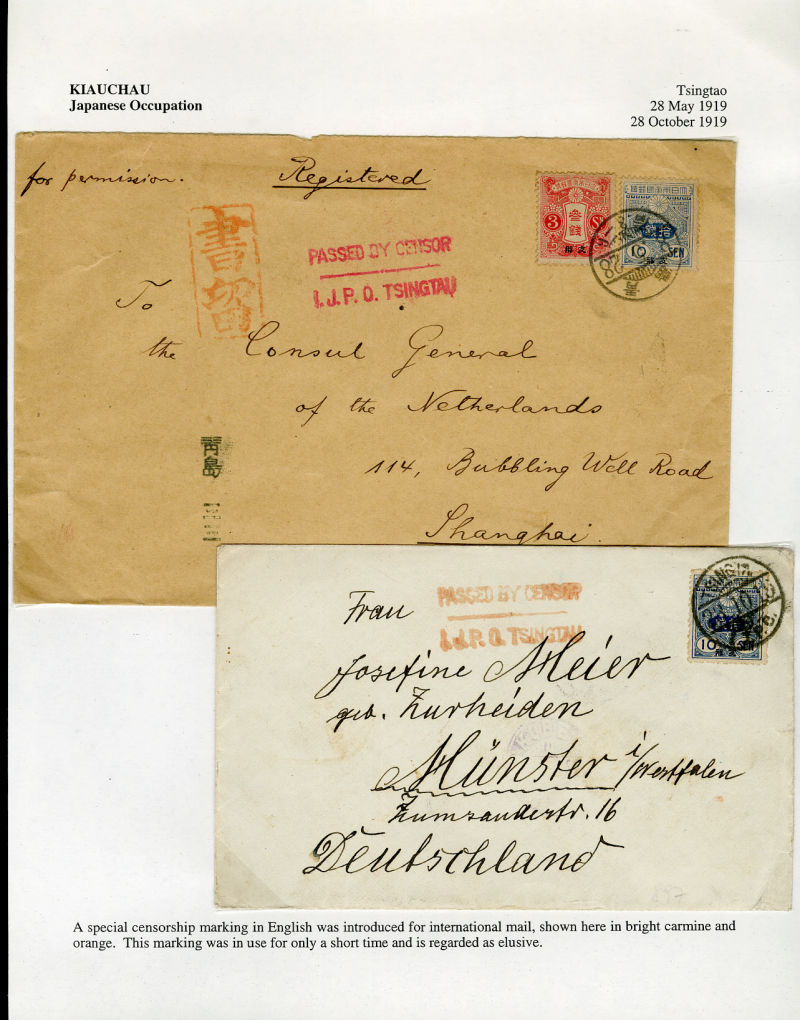 KIAUCHAU
Japanese Occupation
Tsingtao
28 May 1919
28 October 1919
for permission.
Registered
書留
PASSED BY CENSOR
I. J. P. O. TSINGTAU
3
叁銭
支那
拾銭
10 SEN
支那
To
the Consul General
of the Netherlands
114, Bubbling Well Road
Shanghai.
青島
PASSED BY CENSOR
I. J. P. O. TSINGTAU
10 SEN
支那
Frau
Josefine Meier
geb. Zurheiden
Münster i/Westfalen
Zumsanderstr. 16
Deutschland
A special censorship marking in English was introduced for international mail, shown here in bright carmine and
orange. This marking was in use for only a short time and is regarded as elusive.